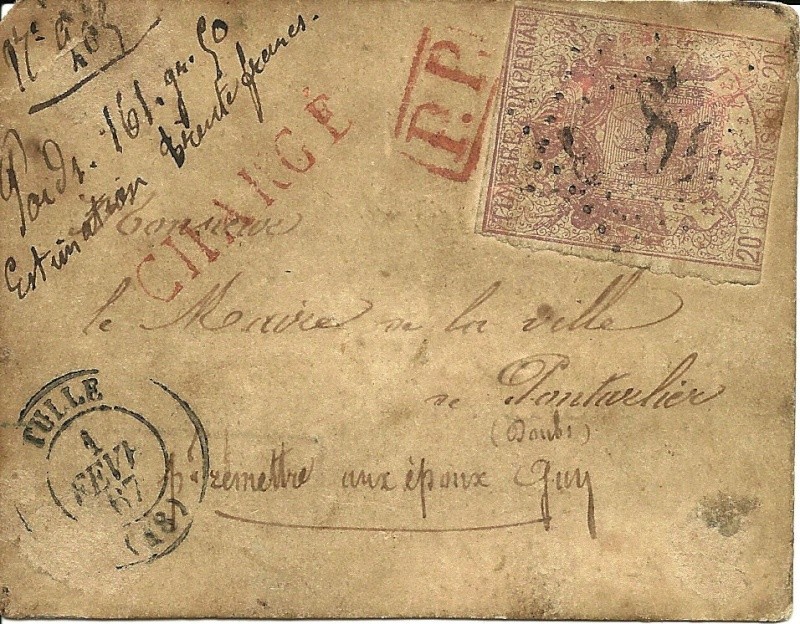 Poids. 161. gr. 50
Estimation trente francs.
CHARGÉ
P.P.
TIMBRE IMPERIAL
20ᶜ DIMENSION 20ᶜ
Monsieur
le Maire de la ville
de Pontarlier
(Doubs)
pr remettre aux époux Guy
TULLE
1
FEVR
67
(18)